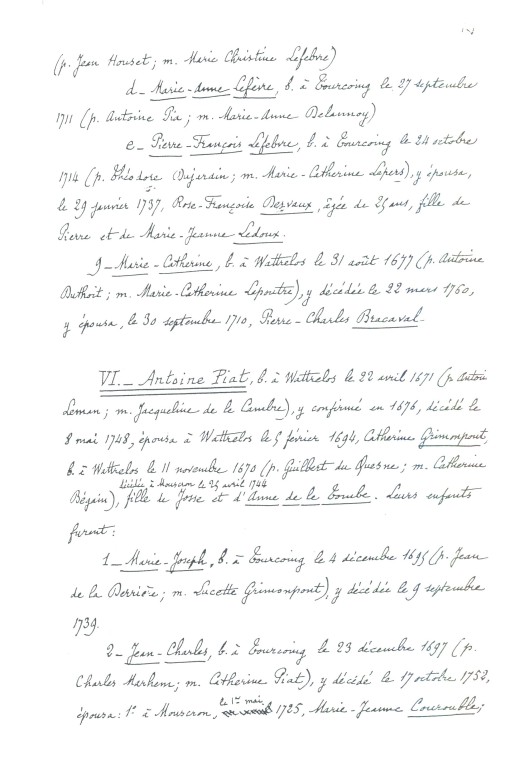 (p. Jean Houset; m. Marie Christine Lefebvre)
d_ Marie-Anne Lefèvre, b. à Tourcoing le 27 septembre
1711 (p. Antoine Pia; m. Marie-Anne Delannoy)
e_ Pierre-François Lefebvre, b. à Tourcoing le 24 octobre
1714 (p. Théodore Dujardin; m. Marie-Catherine Lepers), y épousa,
le 29 janvier 1737, Rose-Françoise Dervaux, âgée de 25 ans, fille de
Pierre et de Marie-Jeanne Ledoux.
9_ Marie-Catherine, b. à Wattrelos le 31 août 1677 (p. Antoine
Duthoit; m. Marie-Catherine Lepoutre), y décédée le 22 mars 1760,
y épousa, le 30 septembre 1710, Pierre-Charles Bracaval.
VI._ Antoine Piat, b. à Wattrelos le 22 avril 1671 (p. Antoi
Leman; m. Jacqueline de le Cambre), y confirmé en 1676, décédé le
8 mai 1748, épousa à Wattrelos le 5 février 1694, Catherine Grimonpont,
b. à Wattrelos le 11 novembre 1670 (p. Guilbert du Quesne; m. Catherine
décédée à Mouscron le 25 avril 1744
Bégain), fille de Josse et d'Anne de le Tombe. Leurs enfants
furent:
1_ Marie-Joseph, b. à Tourcoing le 4 décembre 1695 (p. Jean
de la Derrière; m. Lucette Grimonpont), y décédée le 9 septembre
1739.
2_ Jean-Charles, b. à Tourcoing le 23 décembre 1697 (p.
Charles Marhem; m. Catherine Piat), y décédé le 17 octobre 1752,
le 1er mai
épousa: 1° à Mouscron, 1725, Marie-Jeanne Courouble;